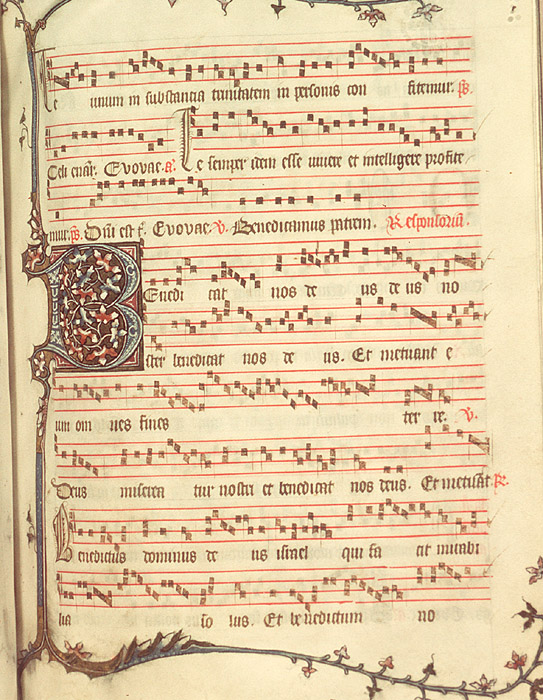 Te unum in substantia trinitatem in personis con fitemur. ps.
Celi enar. Evovae. a. Te semper idem esse vivere et intelligere profite
mur. ps. Dñi est t̃. Evovae. v. Benedicamus patrem. Responsoria.
Benedi cat nos de us de us no
ster benedicat nos de us. Et metuant e
um om nes fines ter re. v.
Deus miserea tur nostri et benedicat nos deus. Et metuãt R.
Benedictus dominus de us israel qui fa cit mirabi
lia so lus. Et be nedictum no